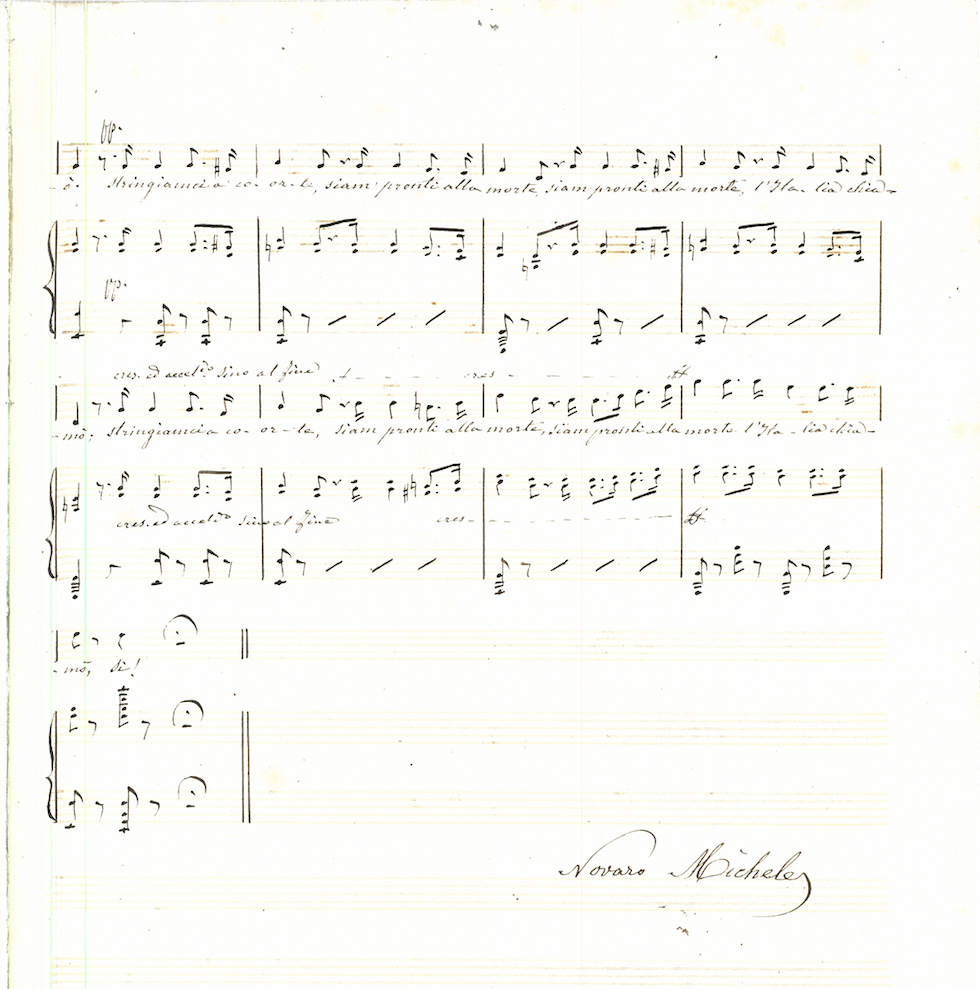 pp.
- ò. stringiamci a co- or- te, siam pronti alla morte, siam pronti alla morte, l'Ita- lia chia-
pp.
cres. ed accel.do sino al fine cres - - - ff
- mò; stringiamci a co- or- te, siam pronti alla morte, siam pronti alla morte l'Ita - lia chia-
cres. ed accel.do sino al fine cres - - - ff
- mò, sì!
Novaro Michele